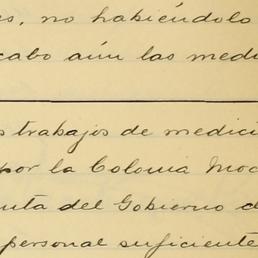 es, no habiéndolo
cabo aún las medi
s trabajos de medici
por la Colonia Moc
nta del Gobierno d
personal suficiente